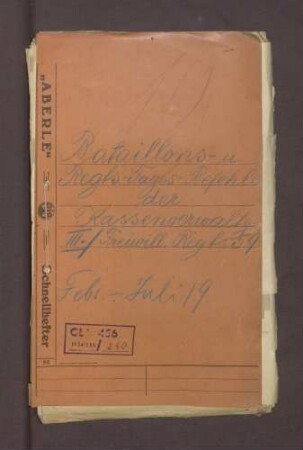 „ABERLE"
Schnellhefter
Bataillons- u.
Regts-Tages-Befehle
der
Kassenverwaltg
III./Freiwill. Regt. 54
Febr. – Juli 19
456